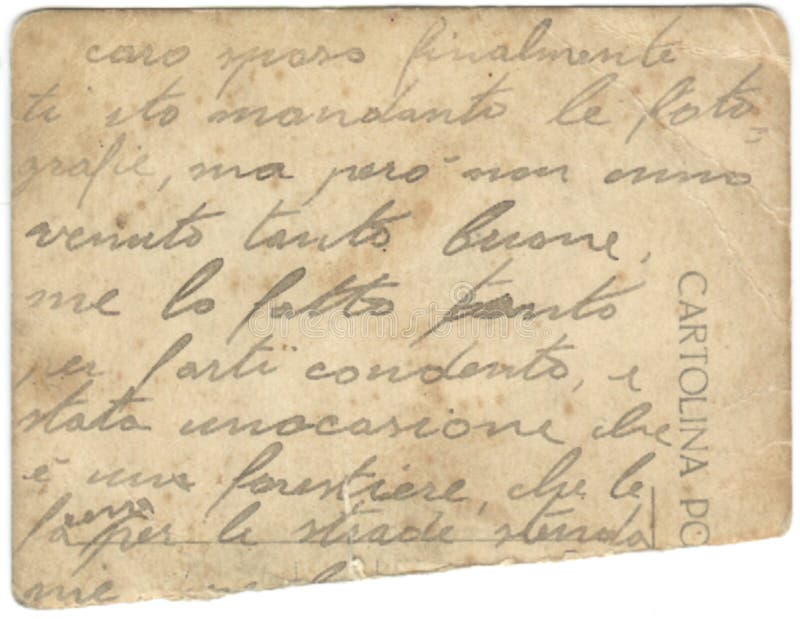 caro sposo finalmente
ti sto mandanto le foto=
grafie, ma però non anno
venuto tanto buone,
me lo fatto tanto
per farti condento, e
stata unocasione che
è una forestiere, che le
fa per le strade
mie
CARTOLINA PO